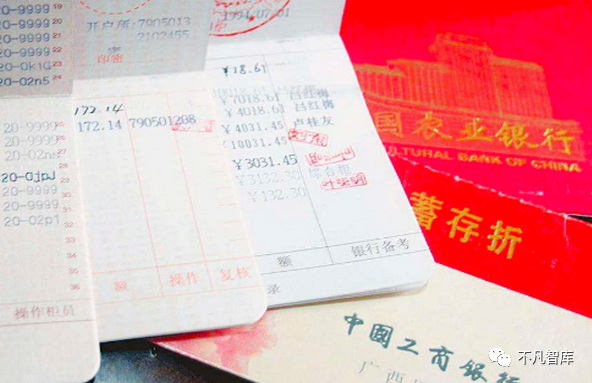 20-9999
20-9999
20-9999
20-0k1G
20-02n5
19
20
21
22
23
24
开户所:7905013
2102455
密
印密
1991/07/01
172.14
172.14 790501208
¥18.61
¥7018.61 吕红梅
¥4018.61 吕红梅
¥4031.45 卢桂友
¥10031.45
¥3031.45
¥3132.30
¥132.30
20-9999
20-9999
20-02ns
20-0jpJ
20-9999
20-9999
20-02p1
操作柜员
额 操作 复核
额 银行备考
录
国农业银行
CULTURAL BANK OF CHINA
蓄存折
中國工商銀行
广西
不凡智库